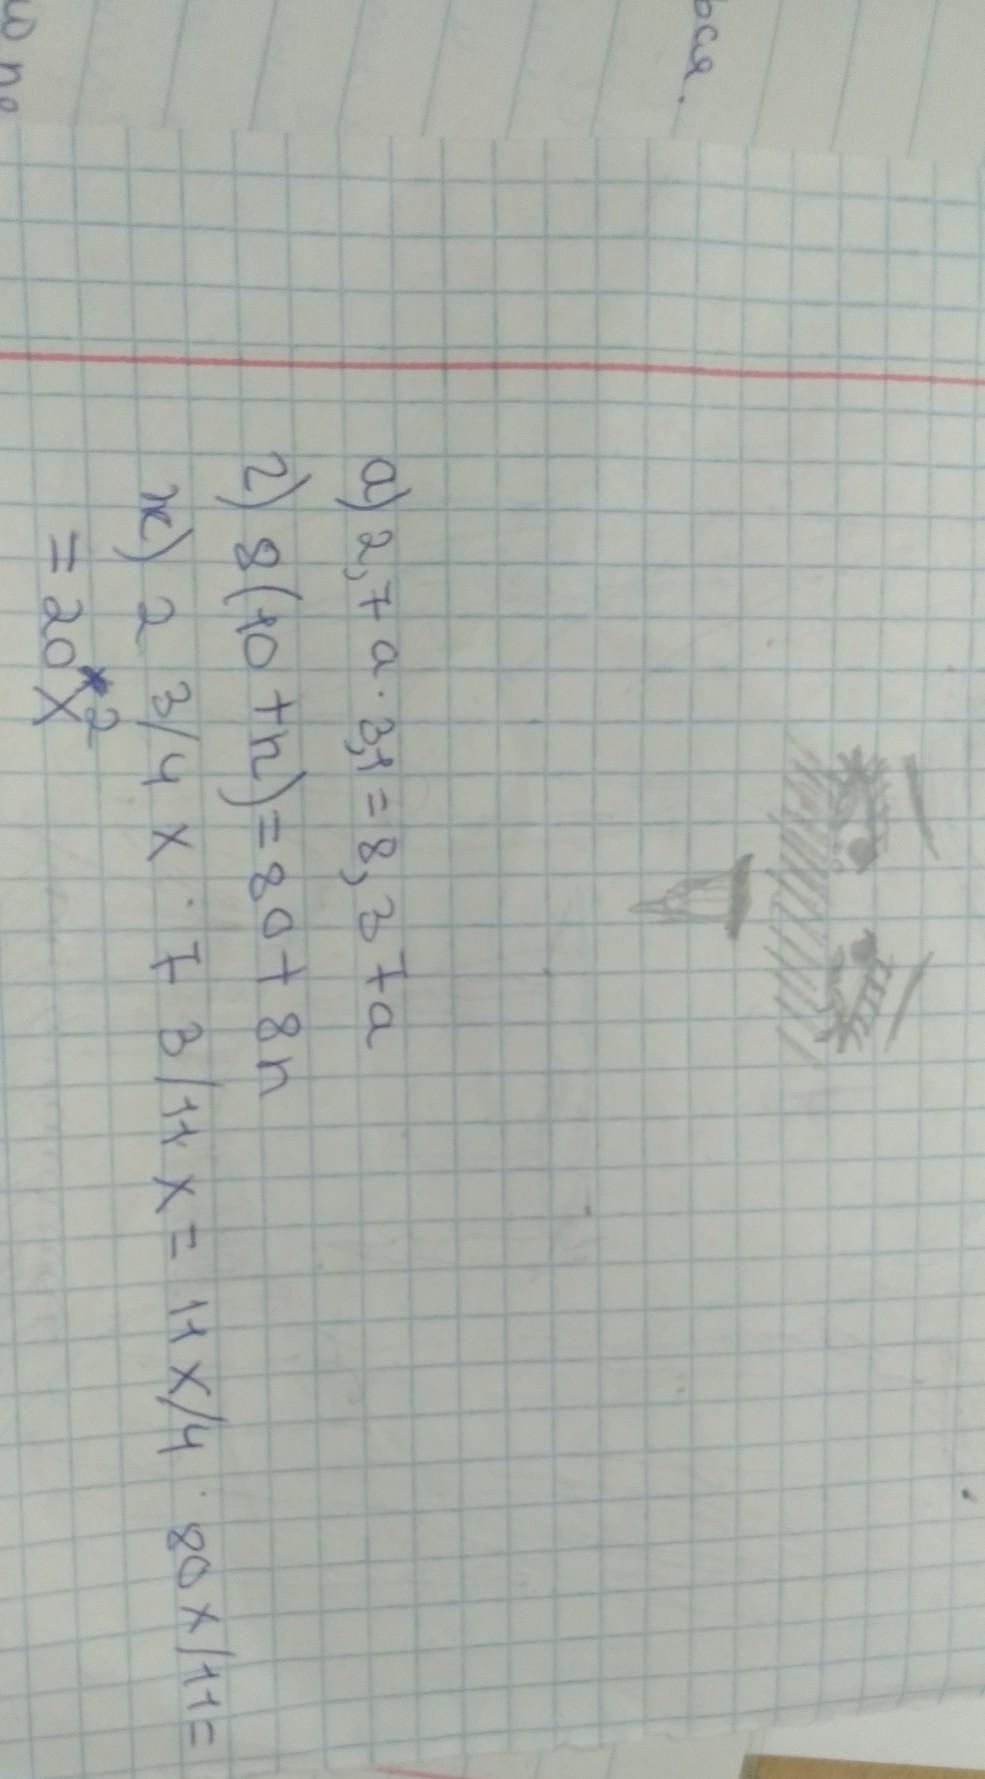 ься.
а) 2,7 а · 3,1 = 8,37а
г) 8(10 + n) = 80 + 8n
ж) 2 3/4 x · 7 3/11 x = 11x/4 · 80x/11 =
= 20x²
ш по